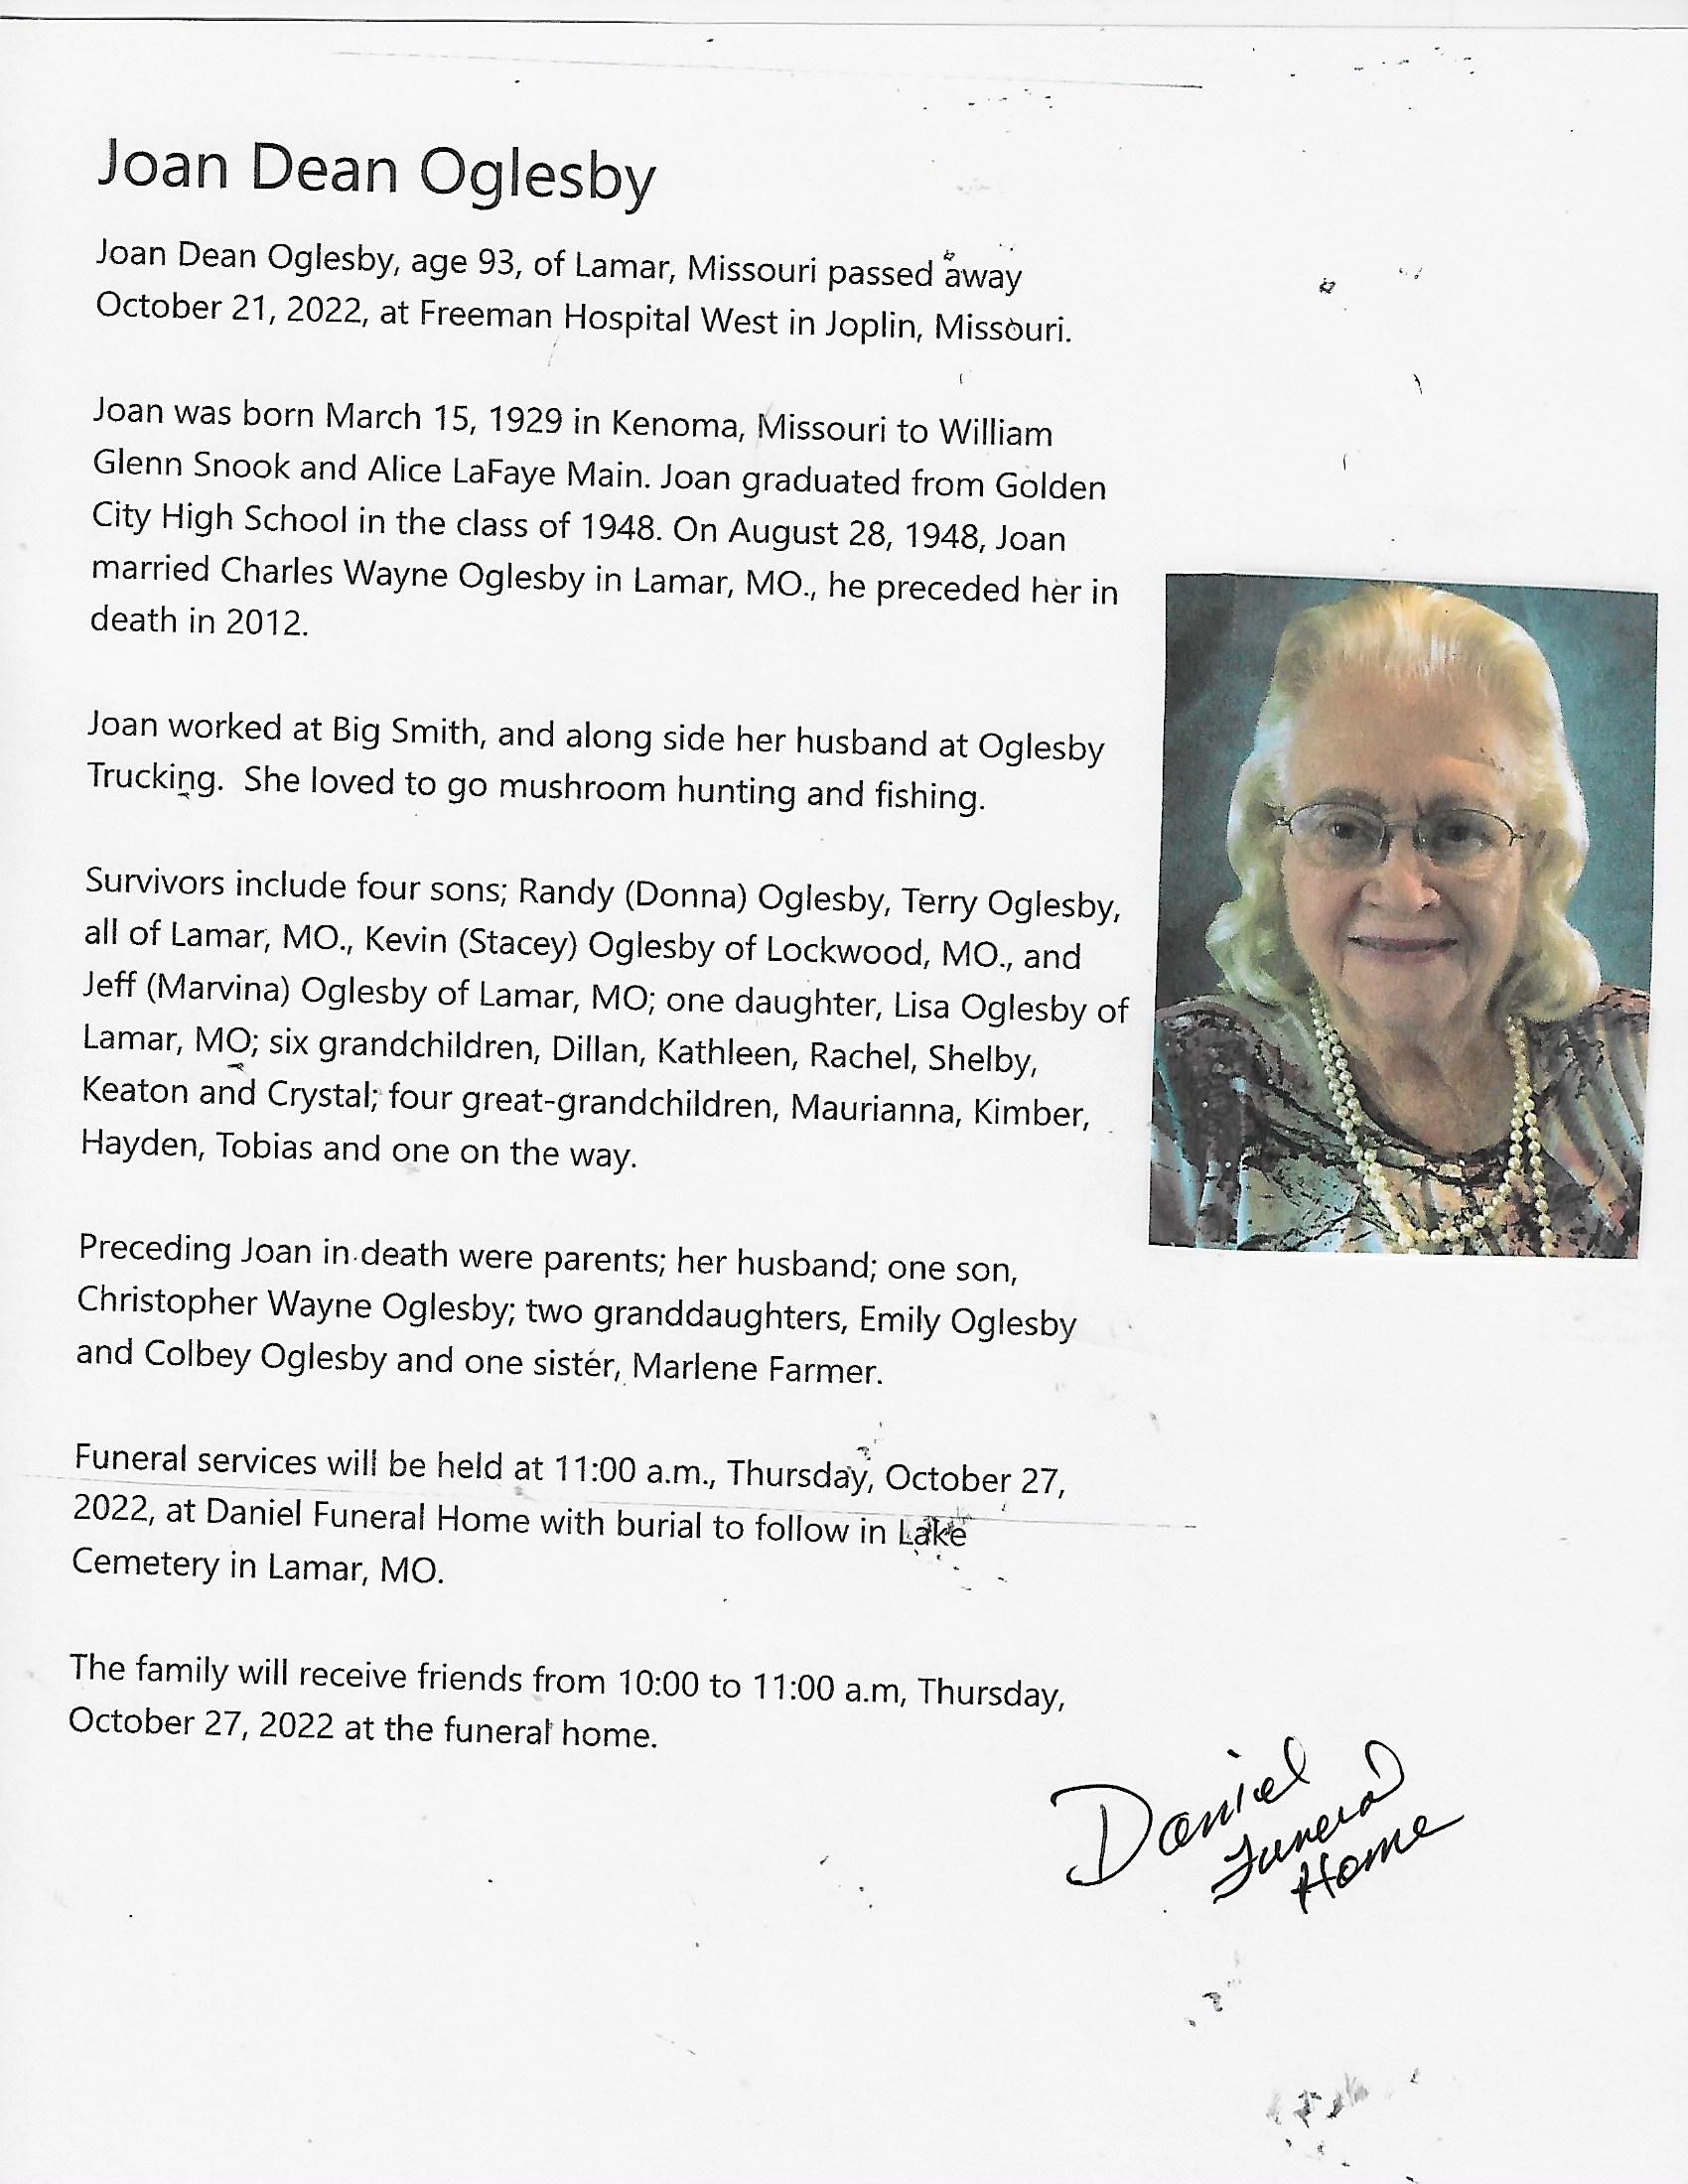 Joan Dean Oglesby
Joan Dean Oglesby, age 93, of Lamar, Missouri passed away
October 21, 2022, at Freeman Hospital West in Joplin, Missouri.
Joan was born March 15, 1929 in Kenoma, Missouri to William
Glenn Snook and Alice LaFaye Main. Joan graduated from Golden
City High School in the class of 1948. On August 28, 1948, Joan
married Charles Wayne Oglesby in Lamar, MO., he preceded her in
death in 2012.
Joan worked at Big Smith, and along side her husband at Oglesby
Trucking.  She loved to go mushroom hunting and fishing.
Survivors include four sons; Randy (Donna) Oglesby, Terry Oglesby,
all of Lamar, MO., Kevin (Stacey) Oglesby of Lockwood, MO., and
Jeff (Marvina) Oglesby of Lamar, MO; one daughter, Lisa Oglesby of
Lamar, MO; six grandchildren, Dillan, Kathleen, Rachel, Shelby,
Keaton and Crystal; four great-grandchildren, Maurianna, Kimber,
Hayden, Tobias and one on the way.
Preceding Joan in death were parents; her husband; one son,
Christopher Wayne Oglesby; two granddaughters, Emily Oglesby
and Colbey Oglesby and one sister, Marlene Farmer.
Funeral services will be held at 11:00 a.m., Thursday, October 27,
2022, at Daniel Funeral Home with burial to follow in Lake
Cemetery in Lamar, MO.
The family will receive friends from 10:00 to 11:00 a.m, Thursday,
October 27, 2022 at the funeral home.
Daniel
Funeral
Home